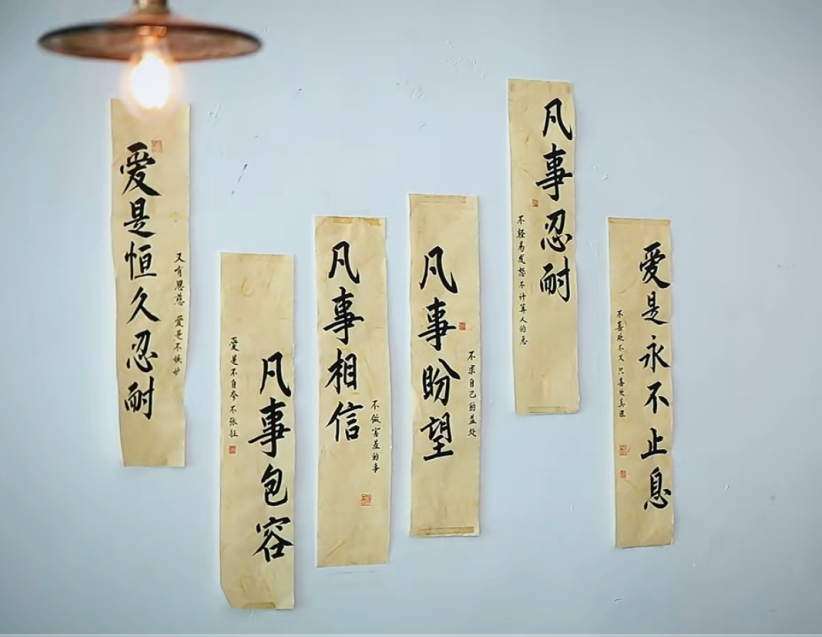 爱是恒久忍耐
又有恩慈 爱是不嫉妒
凡事包容
爱是不自夸 不张狂
凡事相信
不做害羞的事
凡事盼望
不求自己的益处
凡事忍耐
不轻易发怒 不计算人的恶
爱是永不止息
不喜欢不义 只喜欢真理